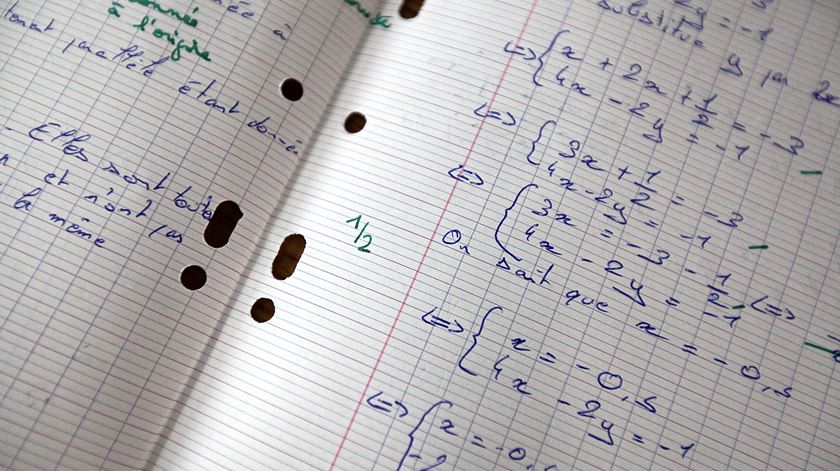 à l'origine
à
étant donnée
Elles sont toute
et n'ont pas
la même
1/2
2y = -1
substitue y
<=> { x + 2x + 1/2 = -3
4x - 2y = -1
<=> { 3x + 1/2 = -3
4x - 2y = -1
<=> { 3x = -3 - 1/2 <=>
4x - 2y = -1
On sait que x = -0,5
<=> { x = -0,5
4x - 2y = -1
<=> { x = -0,
-2